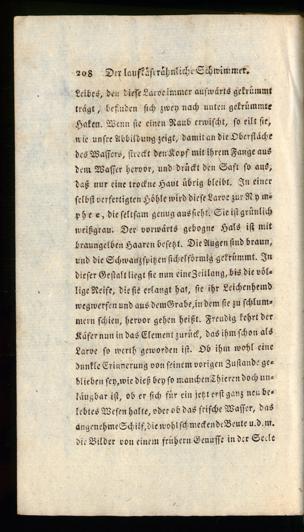 208 Der laufkäferähnliche Schwimmer.
Leibes, den diese Larve immer auswärts gekrümmt
trägt, befinden sich zwey nach unten gekrümmte
Haken. Wenn sie einen Raub erwischt, so eilt sie,
wie unsre Abbildung zeigt, damit an die Oberfläche
des Wassers, streckt den Kopf mit ihrem Fange aus
dem Wasser hervor, und drückt den Saft so aus,
daß nur eine trockne Haut übrig bleibt. In einer
selbst verfertigten Höhle wird diese Larve zur Nym=
phe, die seltsam genug aussieht. Sie ist grünlich
weißgrau. Der vorwärts gebogne Hals ist mit
braungelben Haaren besetzt. Die Augen sind braun,
und die Schwanzspitzen sichelförmig gekrümmt. In
dieser Gestalt liegt sie nun eine Zeitlang, bis die völ=
lige Reife, die sie erlangt hat, sie ihr Leichenhemd
wegwerfen und aus dem Grabe, in dem sie zu schlum=
mern schien, hervor gehen heißt. Freudig kehrt der
Käfer nun in das Element zurück, das ihm schon als
Larve so werth geworden ist. Ob ihm wohl eine
dunkle Erinnerung von seinem vorigen Zustande ge=
blieben sey, wie dieß bey so manchen Thieren doch un=
läugbar ist, ob er sich für ein jetzt erst ganz neu be=
lebtes Wesen halte, oder ob das frische Wasser, das
angenehme Schilf, die wohlschmeckende Beute u. d. m.
die Bilder von einem frühern Genusse in der Seele